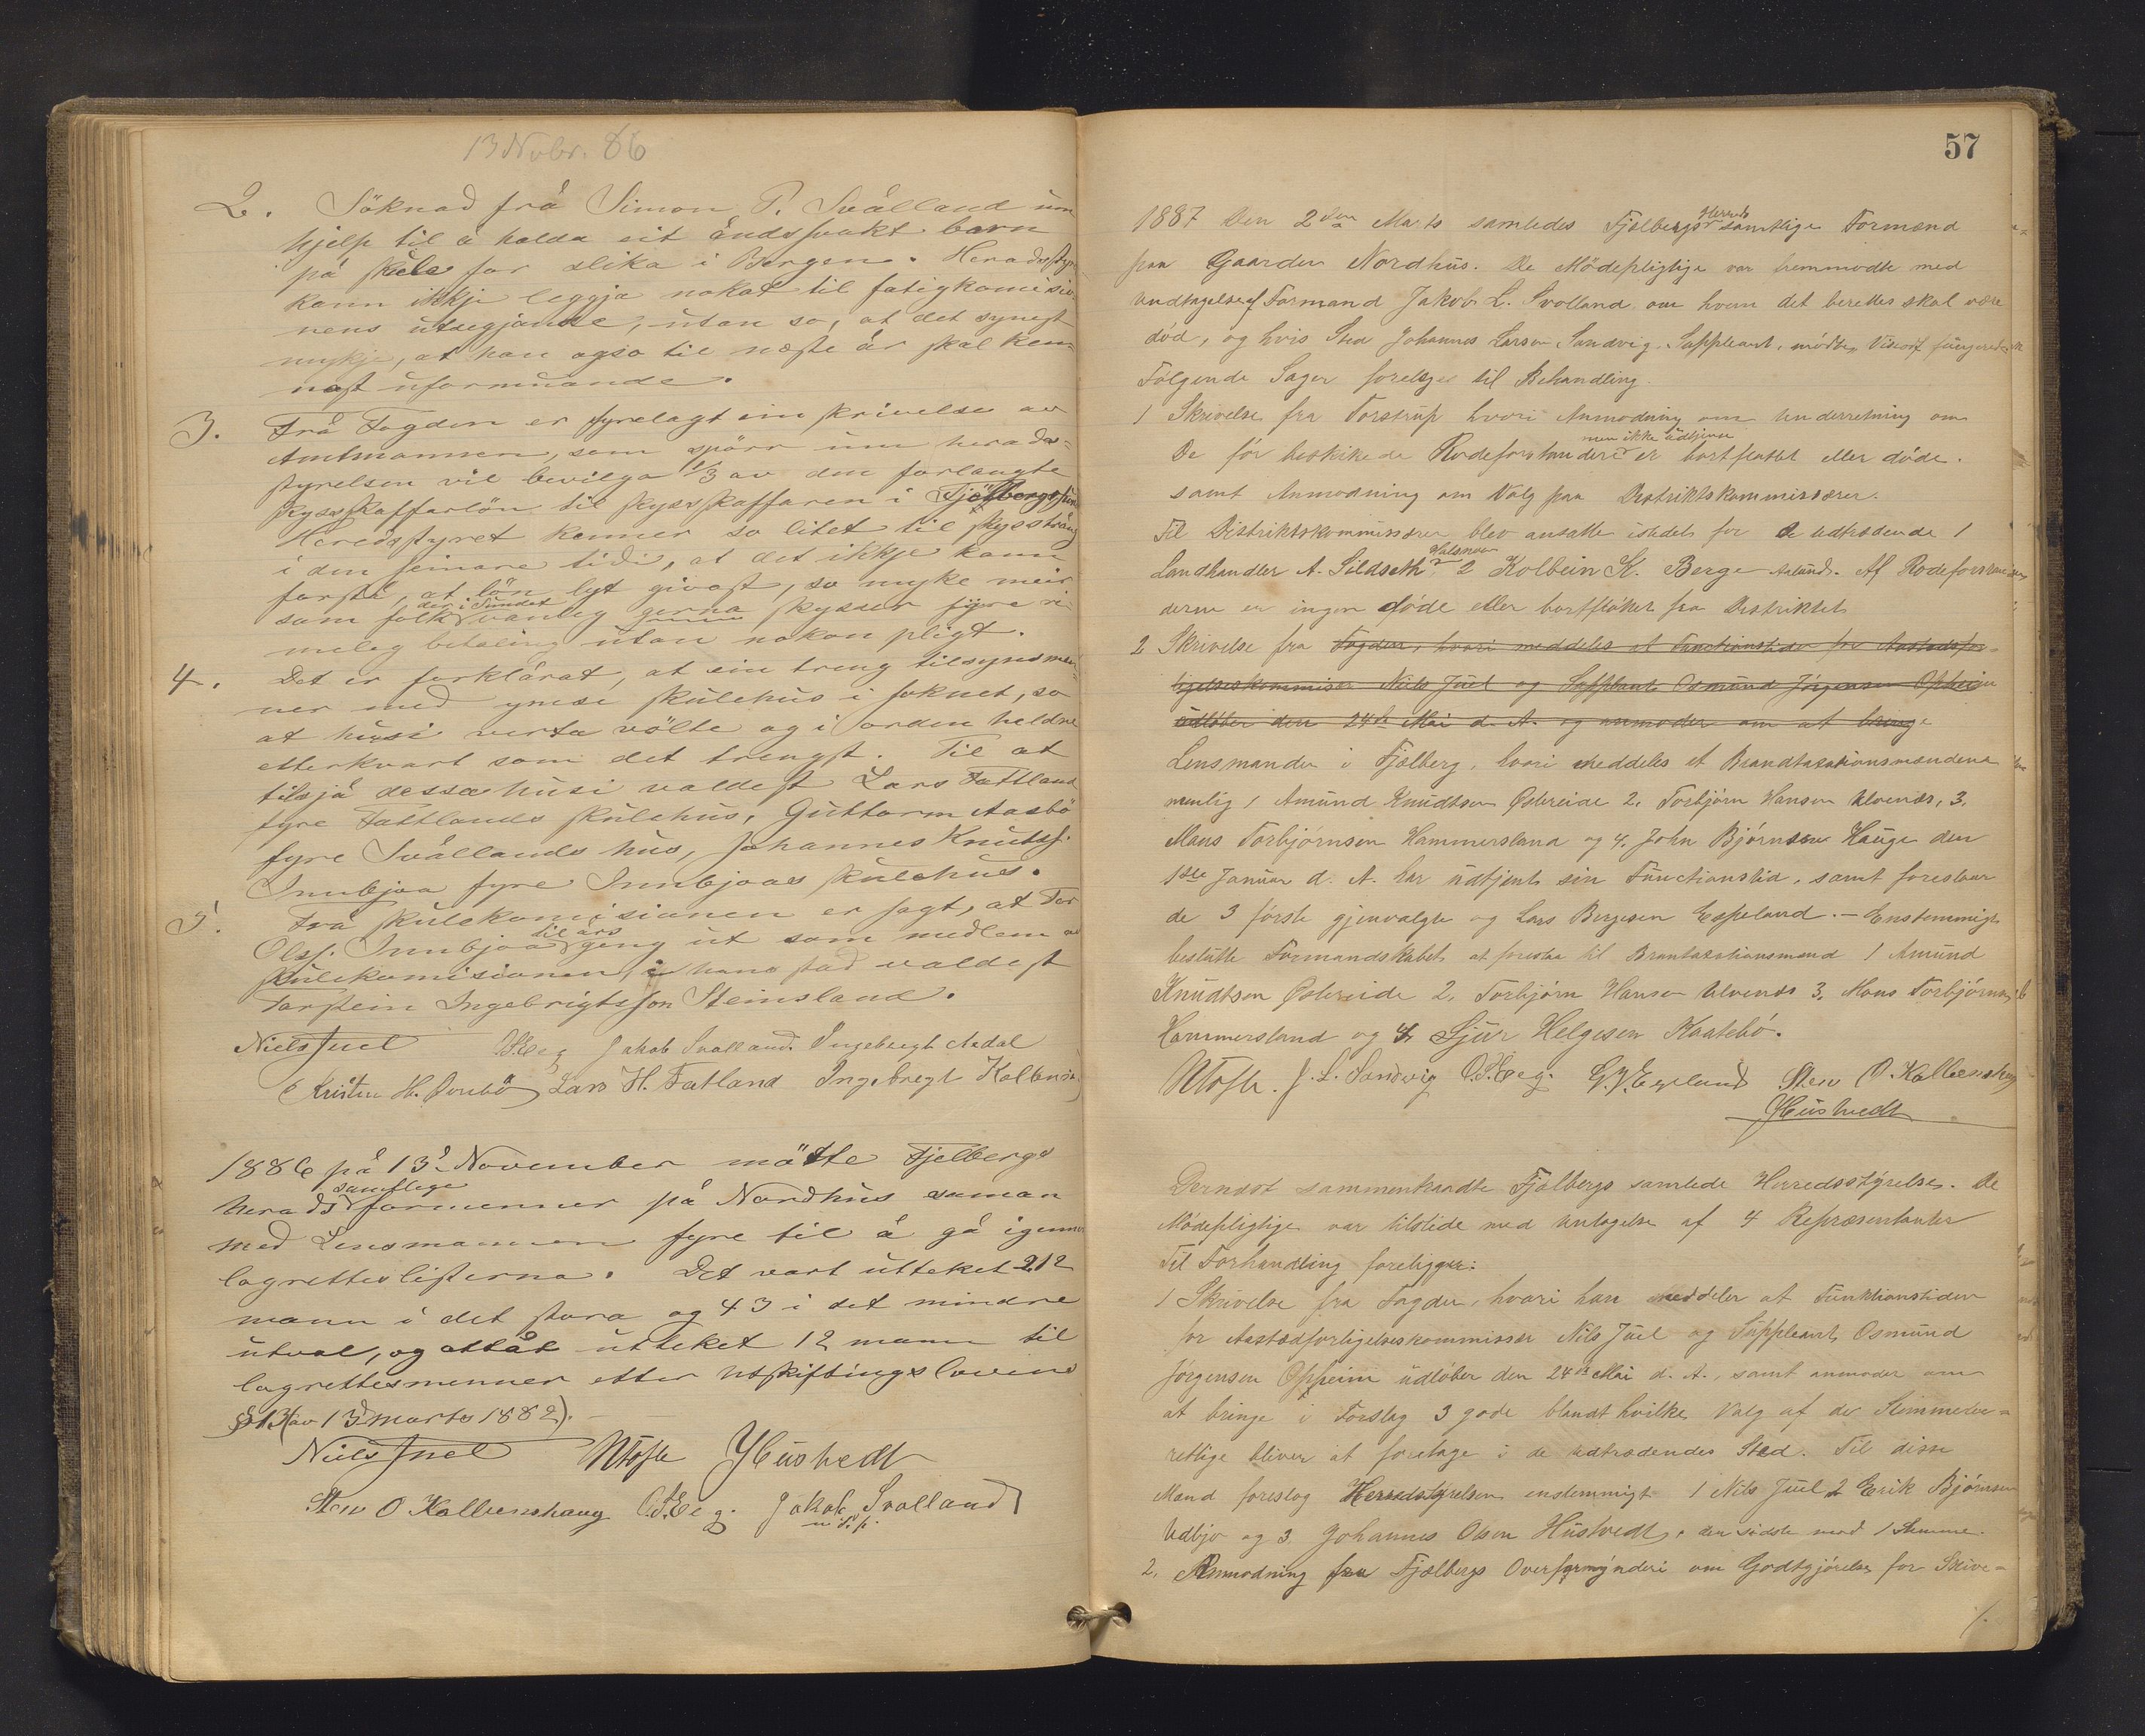 13 Novbr. 86
2. Söknad frå Simon P. Svålland um
hjelp til å halda eit åndssvakt barn
på skule for slika i Bergen. Heradsstyre
kann ikkje leggja nokot til fatigkomisio-
nens utsegjande, utan so, at det synest
mykje, at han ogso til næste år skal ken-
nast uformuande.
3. Frå Fogden er fyrelagt ein skrivelse av
Amtmannen, som spörr um herads-
styrelsen vil bevilga 1/3 av den forlangte
skyssskaffarlön til skyssskaffaren i Fjelbergssund
Heredsstyret kenner so litet til skysstrang
i den seinare tidi, at det ikkje kann
forstå, at lön lyt givast, so myke meir
som folk der i Sundet vanleg gerna skysser fyre ri-
meleg betaling utan nokon pligt.
4. Det er forklårat, at ein treng tilsynsmen-
ner med ymse skulehus i soknet, so
at husi verta völte og i orden heldne
etterkvart som det trengst. Til at
tilsjå dessa husi valdest Lars Fattland
fyre Fattlands skulehus, Guttorm Aasbö
fyre Svållands hus, Johannes Knutss.
Innbjoa fyre Innbjoas skulehus.
5. Frå skulekomisionen er sagt, at Tor
Olss. Innbjoa til års geng ut som medlem av
skulekomisionen, i hans stad valdest
Torstein Ingebrigtsson Steinsland.
Niels Juel O.S.Eeg Jakob Svolland. Ingebrigt Ardal
Kristen H. Lars H. Fatland Ingebregt Kolbens
1886 på 13d November mötte Fjelbergs
herads samtlege formenner på Nordhus saman
med Lensmannen fyre til å gå igennem
lagretteslisterna. Det vart utteket 212
mann i det stora og 43 i det mindre
utval, og attåt utteket 12 mann til
lagrettesmenner etter Utskiftingslovens
§ 13 (av 13d marts 1882).
Niels Juel NTofte YHustvedt
Sten O Kolbenshaug O.S.Eeg. Jakob Svolland
m. P. p.
57
1887 Den 2den Marts samledes Fjelbergs Herreds samtlige Formænd
paa Gaarden Nordhus. De Mödepligtige var fremmødte med
Undtagelse af Formand Jakob L. Svolland om hvem det berettes skal være
död, og hvis Sted Johannes Larsen Sandvig. Suppleant, mödte. Viceof fungerede
Fölgende Sager forelæges til Behandling.
1 Skrivelse fra Torstrup hvori Anmodning om Underretning om
De för beskikede Rodeforstandere men ikke udtjente er bortflottet eller döde.
samt Anmodning om Valg paa Distriktskommissærer.
Til Distriktskommissærer blev ansatte istedet for de udtrædende 1
Landhandler A. Sildseth Halsnøen 2 Kolbein K. Berge Ølund. Af Rodeforstan
derne er ingen döde eller bortflöttet fra Distriktet
2 Skrivelse fra Fogden, hvori meddeles at Functionstiden for Aastedsfor-
ligelseskommisær Niels Juel og Supplant Osmund Jörgensen Opheim
udlöber den 24de Mai d. A. og anmoder om at bringe
Lensmanden i Fjelberg, hvori meddeles at Brandtaxationsmændene
nemlig 1 Amund Knudtsen Østereide 2. Torbjörn Hansen Ulvenæs, 3.
Mons Torbjörnsen Hammersland og 4. John Björnsen Hauge den
1ste Januar d. A. har udtjent sin Functionstid, samt foreslaar
de 3 förste gjenvalgte og Lars Bergesen Espeland. – Enstemmigt
besluttte Formandskabet at foreslaa til Brantaxationsmænd 1 Amund
Knudtson Östereide 2. Torbjörn Hansen Ulvenæs 3. Mons Torbjörnsen
Hammersland og 4 Sjur Helgesen Kaatebö.
NTofte. J. L. Sandvig O.S.Eeg. G.V.Egeland Sten O. Kolbenshaug
YHustvedt
Dernæst sammentraadte Fjelbergs samlede Herredsstyrelse. De
Mödepligtige var tilstede med Untagelse af 4 Repræsentanter
Til Forhandling foreligger:
1 Skrivelse fra Fogden, hvori han meddeler at Funktionstiden
for Aastedforligelseskommissær Nils Juel og Suppleant Osmund
Jörgensen Oppeim udlöber den 24de Mai d. A., samt anmoder om
at bringe i Forslag 3 gode blandt hvilke Valg af de Stemmebe-
rettige bliver at foretage i de udtrædendes Sted. Til disse
Mænd foreslog Herredstyrelsen enstemmigt 1 Nils Juel 2 Erik Björnsen
Udbjo og 3. Johannes Olsen Hustvedt, den sidste med 1 Stemme.
2. Anmodning fra Fjelbergs Overformynderi om Godtgjörelse for Skive-
/.